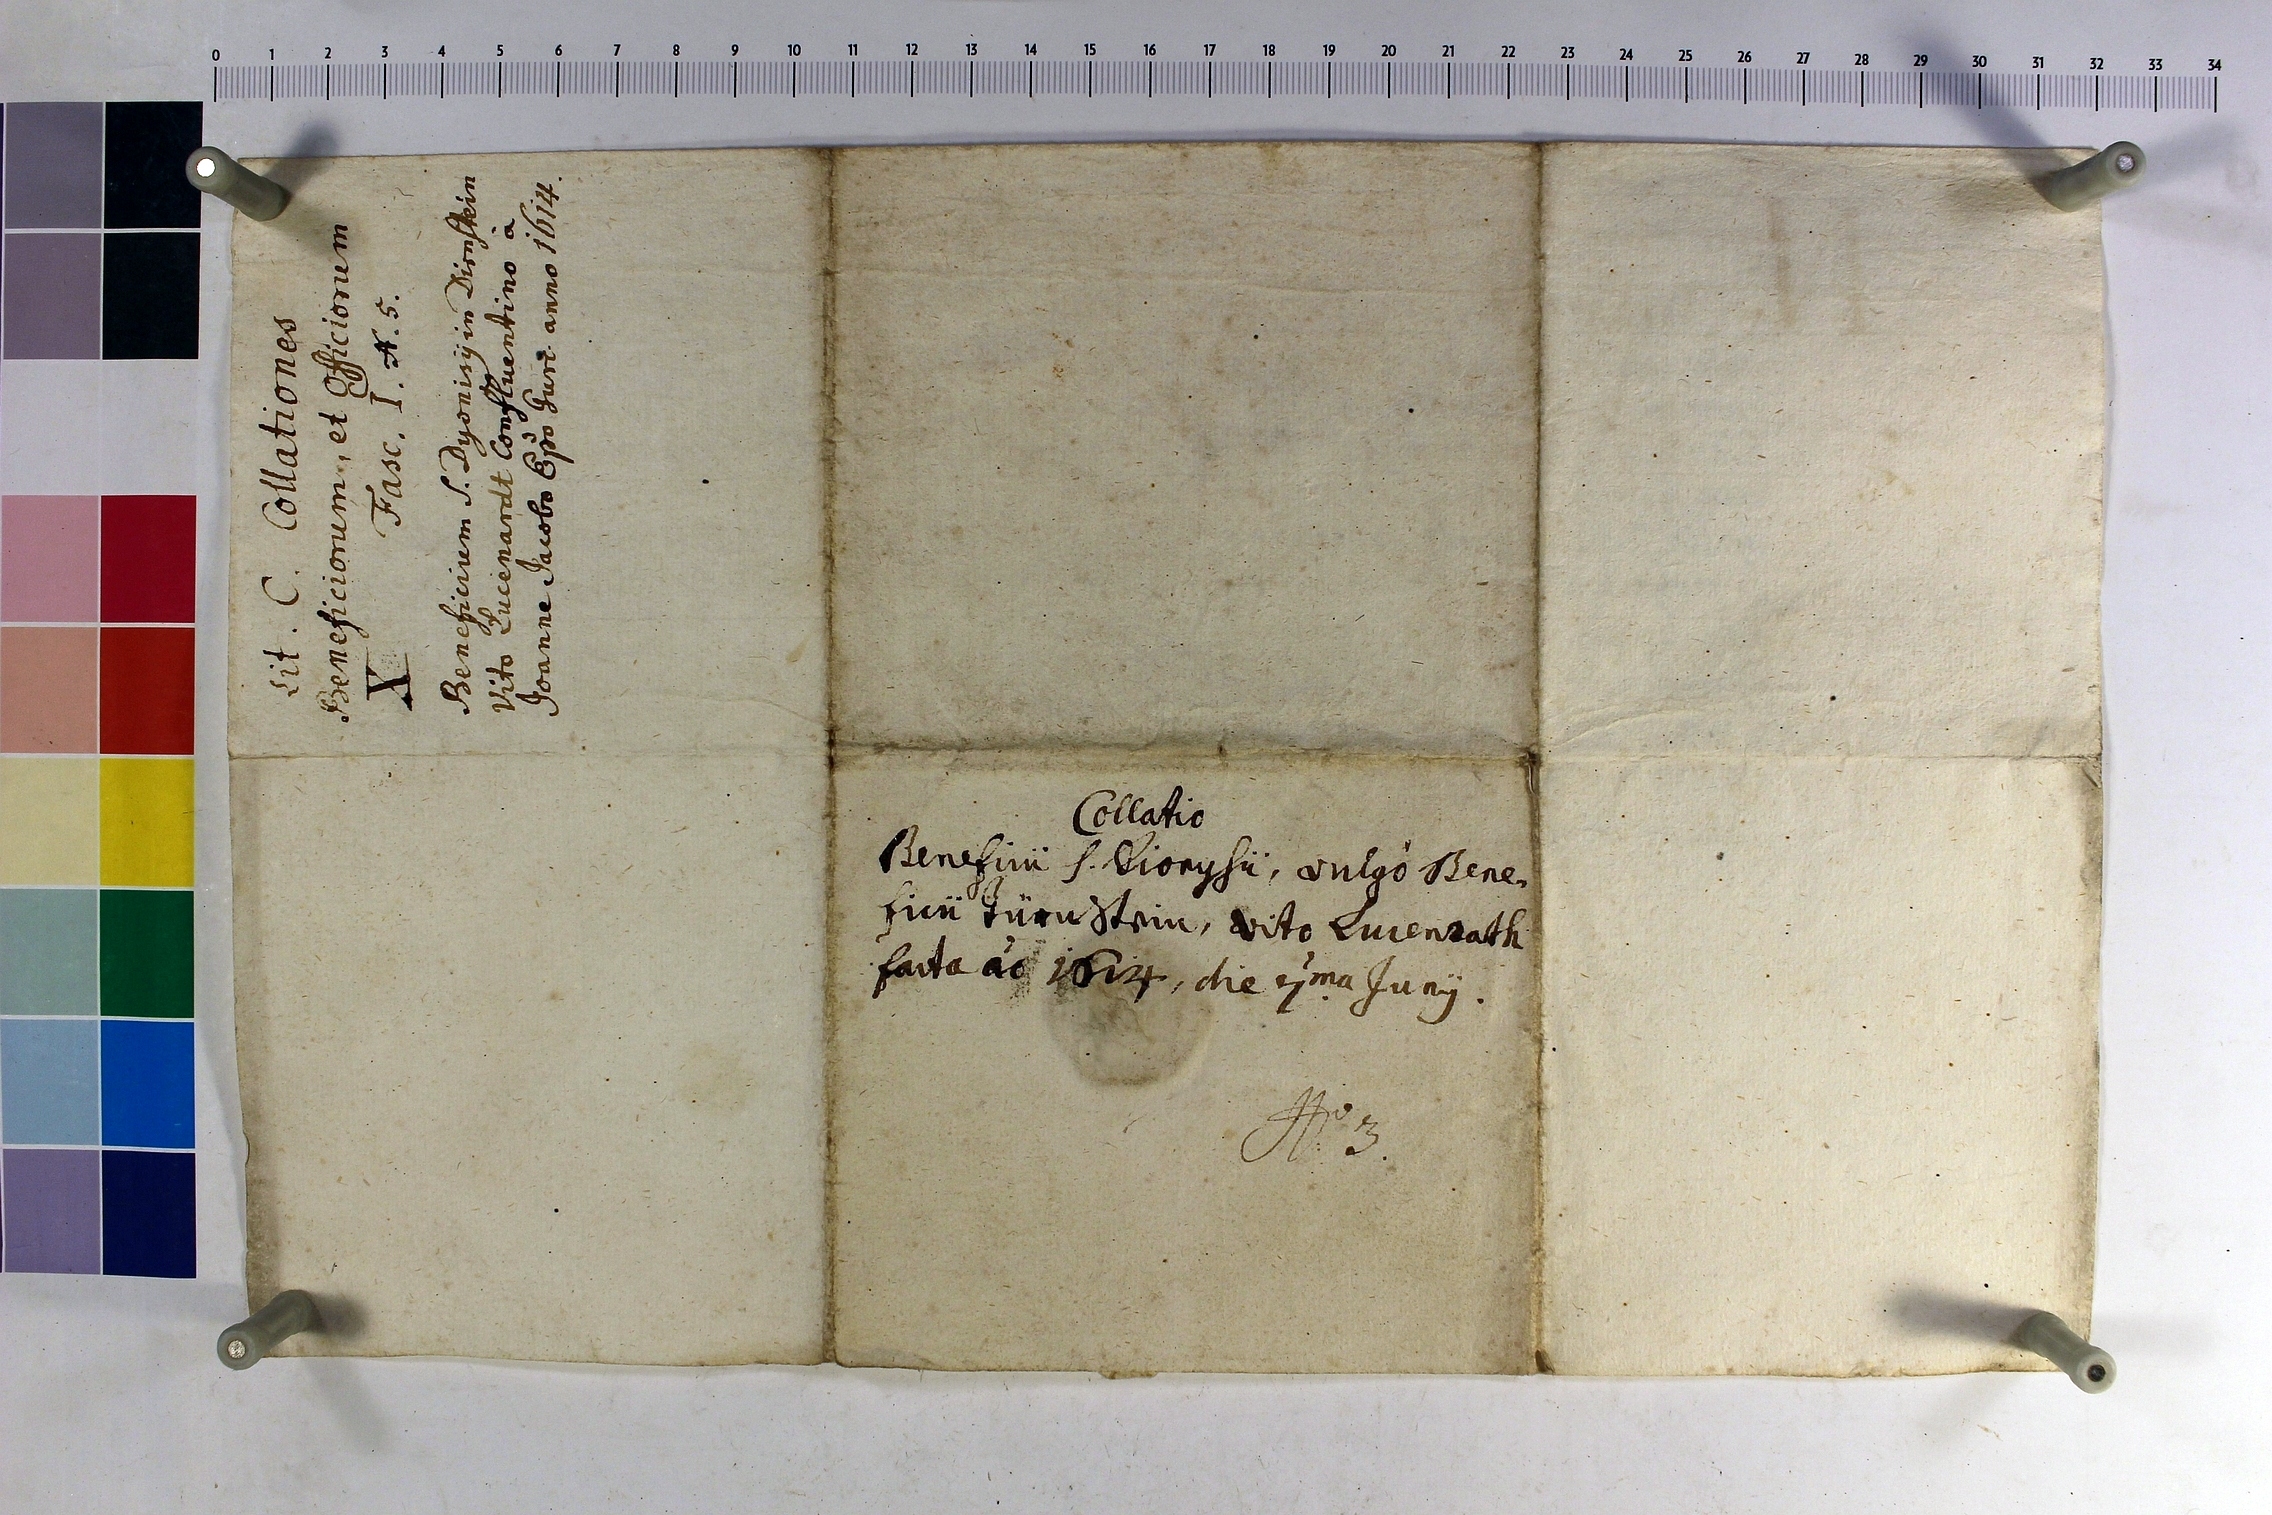 0 1 2 3 4 5 6 7 8 9 10 11 12 13 14 15 16 17 18 19 20 21 22 23 24 25 26 27 28 29 30 31 32 33 34
Lit. C. Collationes
Beneficiorum, et Officiorum
Fasc. I. N. 5.
X
Beneficium S. Dyonisij in Dirnstein
Vito Lucenardt Confluentino à
Joanne Jacobo Epo Gurc. anno 1614.
Collatio
Beneficii S. Dionysii, vulgo Bene-
ficii Dürnstein, Vito Lucenrath
facta ao 1614, die Junij.
No 3.